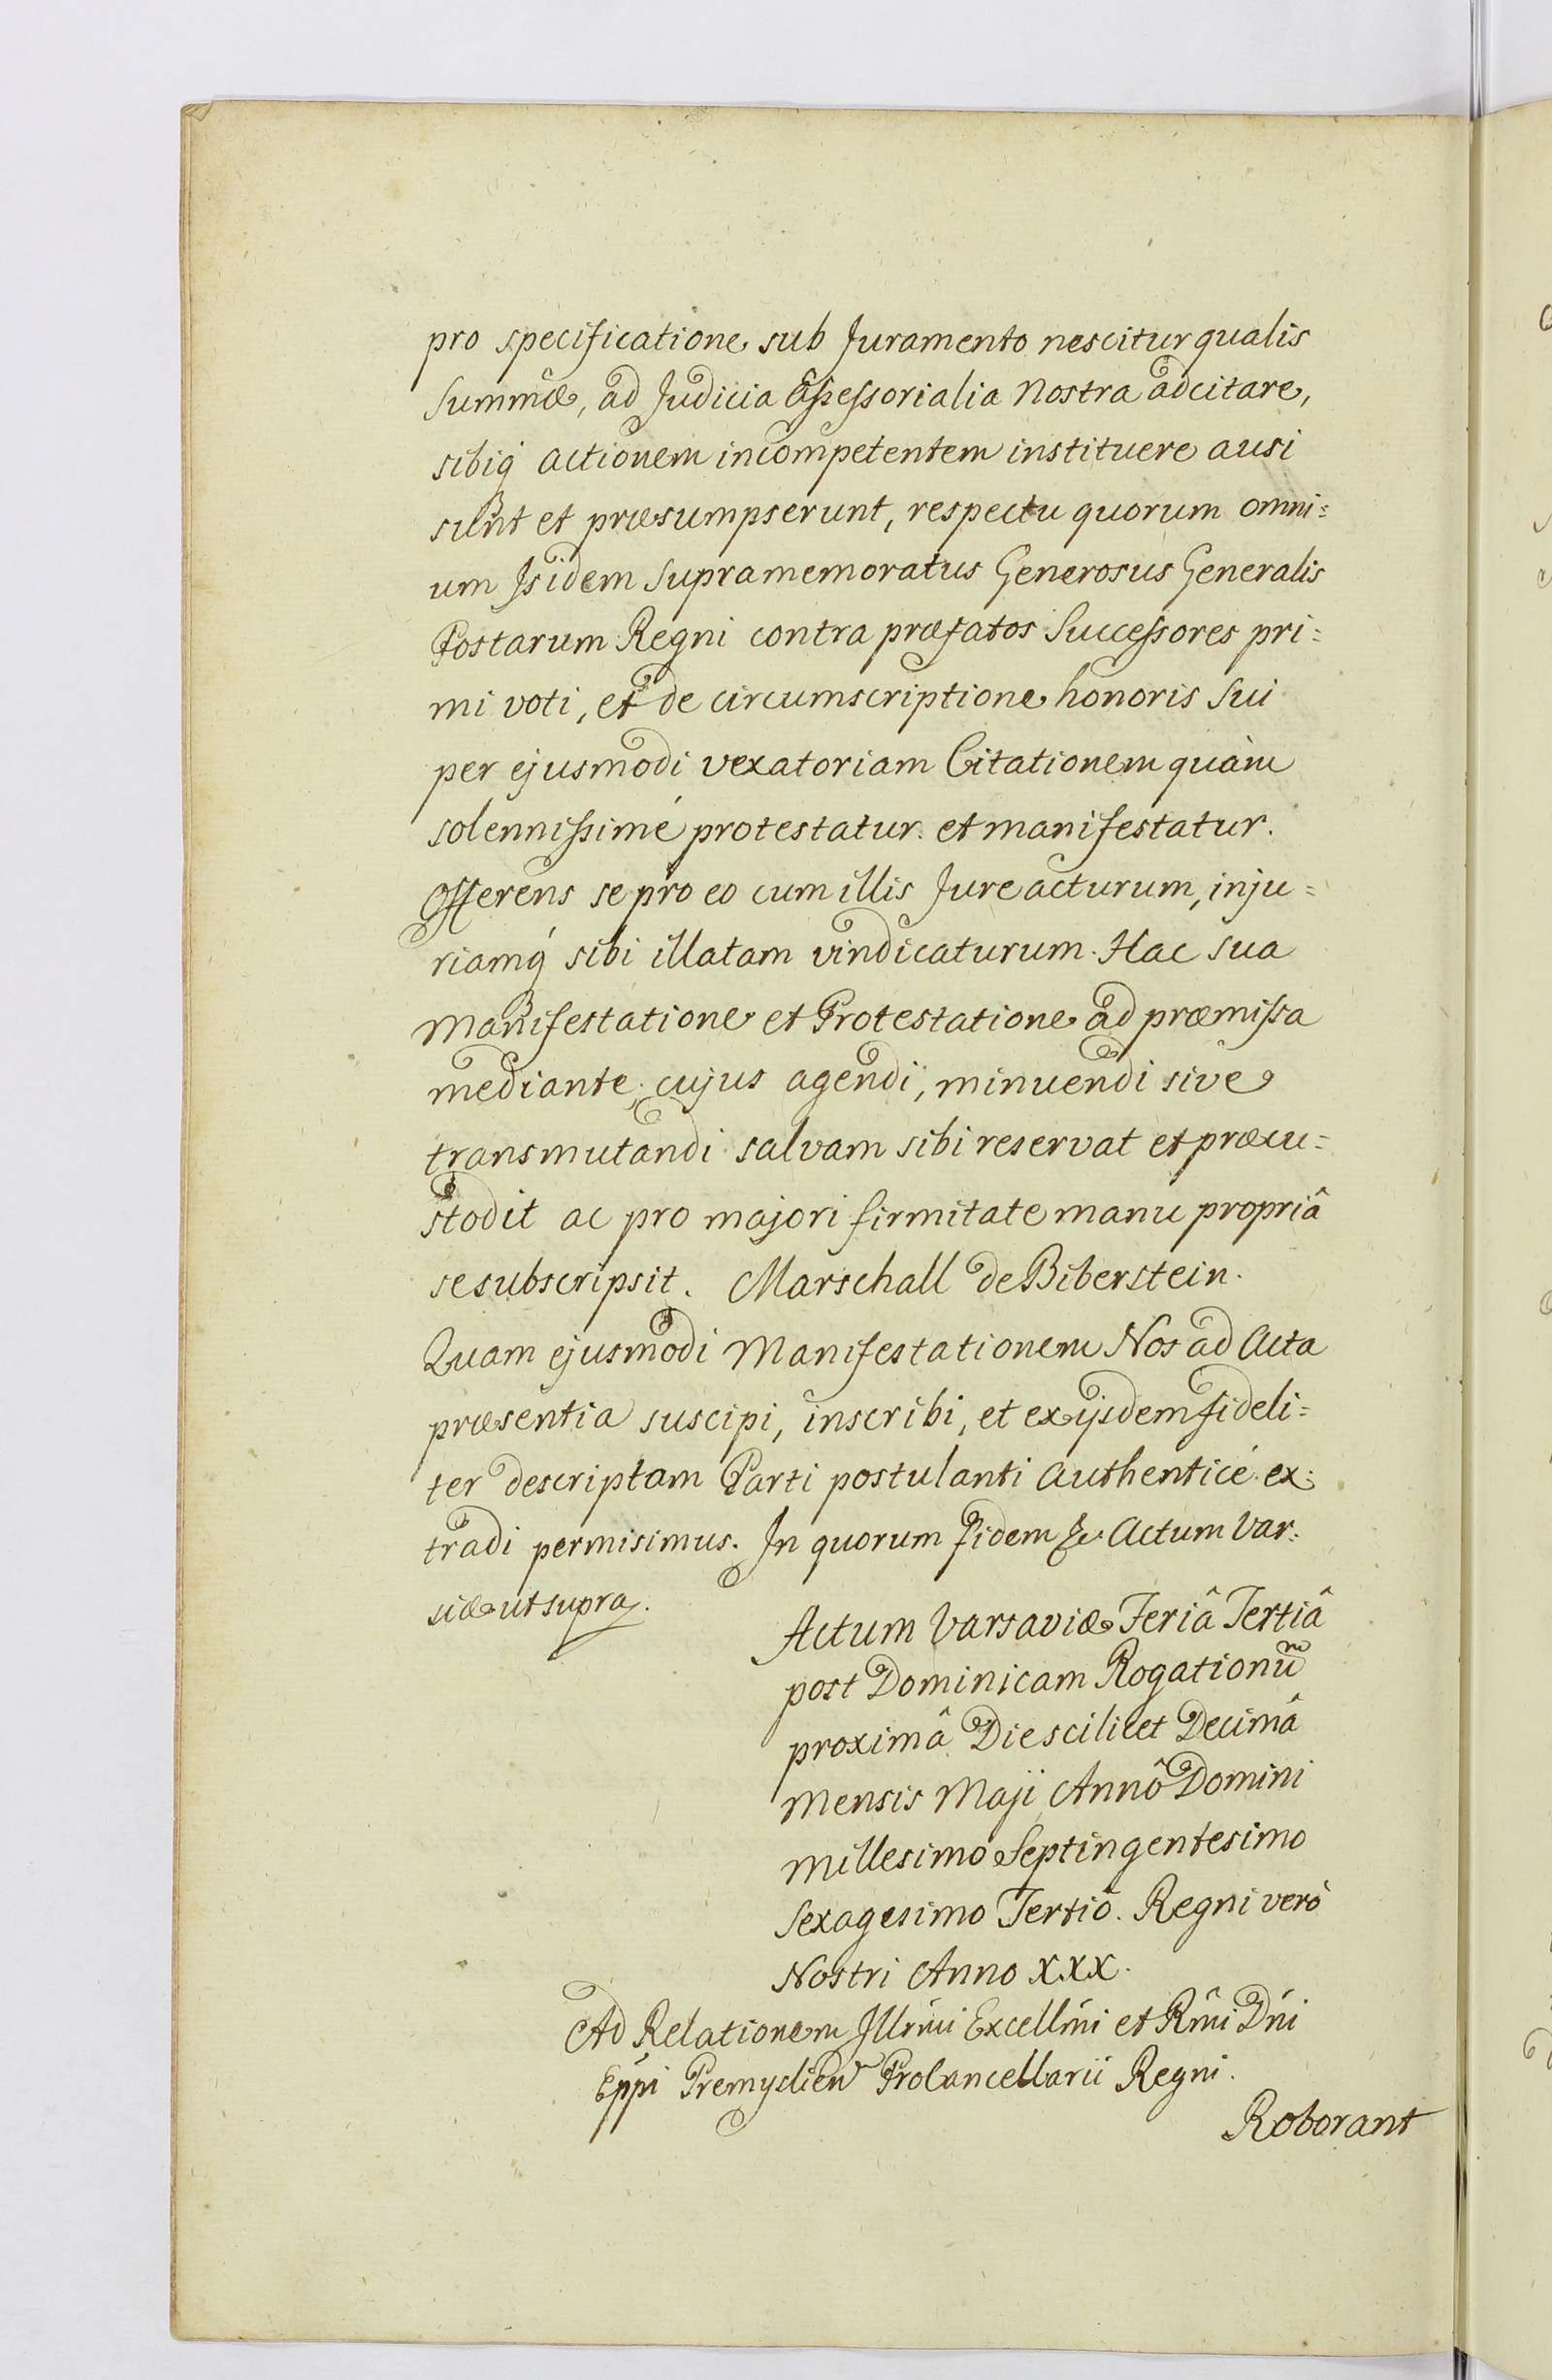 pro specificatione sub Juramento nescitur qualis
Summæ, ad Judicia Assessorialia Nostra adcitare,
sibiq́ actionem incompetentem instituere ausi
sunt et præsumpserunt, respectu quorum omni=
um Isidem Supramemoratus Generosus Generalis
Postarum Regni contra præfatos Successores pri=
mi voti, et de circumscriptione honoris Sui
per ejusmodi vexatoriam Citationem quàm
solennissimé protestatur. et manifestatur.
Offerens se pro eo cum illis Jure acturum, inju=
riamq́ sibi illatam vindicaturum. Hac sua
Manifestatione et Protestatione ad præmissa
mediante. cujus agendi, minuendi sive
transmutandi salvam sibi reservat et præcu=
stodit ac pro majori firmitate manu propriâ
se subscripsit. Marschall de Biberstein.
Quam ejusmodi Manifestationem Nos ad Acta
præsentia suscipi, inscribi, et ex ijsdem fideli=
ter descriptam Parti postulanti authenticé ex=
tradi permisimus. In quorum fidem &c. Actum Var=
siæ ut supra.
Actum Varsaviæ Feriâ Tertiâ
post Dominicam Rogationũm
proximâ Die scilicet Decimâ
Mensis Maji Annô Domini
Millesimo Septingentesimo
Sexagesimo Tertiô. Regni verò
Nostri Anno XXX.
Ad Relationem Illrm̃i Excellm̃i et Rm̃i Dn̄i
Epp̄i Premyslien̄ Procancellarii Regni.
Roborant